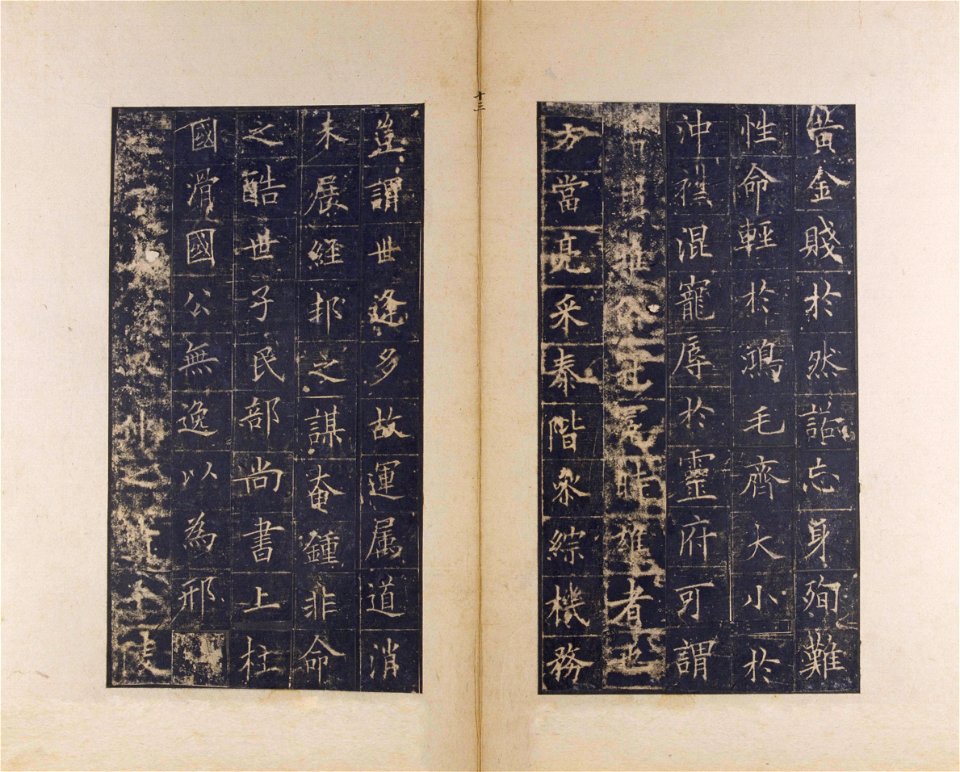 黃金賤於然諾忘身殉難
性命輕於鴻毛齊大小於
沖襟混寵辱於靈府可謂
雅俗冠冕時雄者也
方當亮采泰階參綜機務
十三
豈謂世逢多故運属道消
未展経邦之謀奄鍾非命
之酷世子民部尚書上柱
國滑國公無逸以為邢
仲之墳平陵